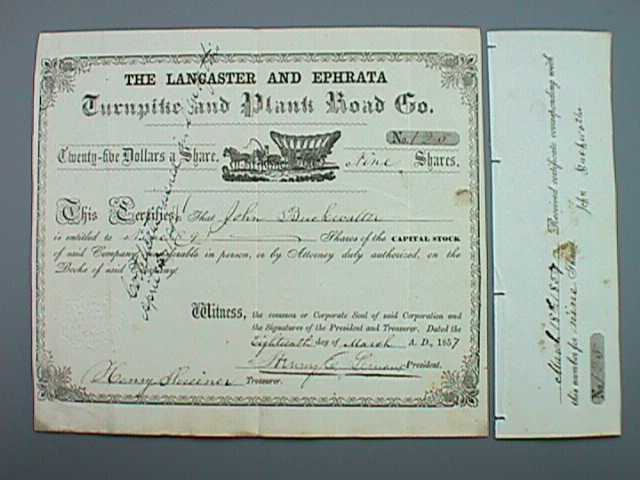 THE LANCASTER AND EPHRATA
Turnpike and Plank Road Co.
No. 120
Twenty-five Dollars a Share. Nine Shares.
This Certifies, That John Buckwalter
is entitled to Shares of the CAPITAL STOCK
of said Company, transferable in person, or by Attorney duly authorized, on the
Books of said Company.
Witness, the common or Corporate Seal of said Corporation and
the Signatures of the President and Treasurer. Dated the
Eighteenth day of March A. D., 1857
President.
Henry Treasurer.
Received certificate corresponding with
this number for nine Shares
March 18th 1857
John
No. 120